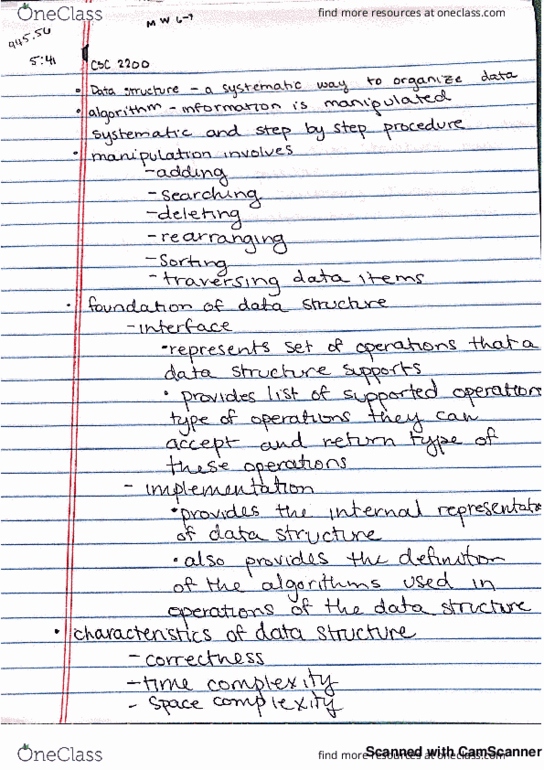 OneClass
find more resources at oneclass.com
M W 6-7
945.50
5:41
CSC 2200
• Data structure - a systematic way to organize data
• algorithm - information is manipulated
systematic and step by step procedure
• manipulation involves
- adding
- searching
- deleting
- rearranging
- Sorting
- traversing data items
• foundation of data structure
- interface
• represents set of operations that a
data structure supports
• provides list of supported operation
type of operations they can
accept and return type of
these operations
- implementation
• provides the internal representate
of data structure
• also provides the definition
of the algorithms used in
operations of the data structure
• characteristics of data structure
- correctness
- time complexity
- Space complexity
OneClass
find more resources at oneclass.com
Scanned with CamScanner